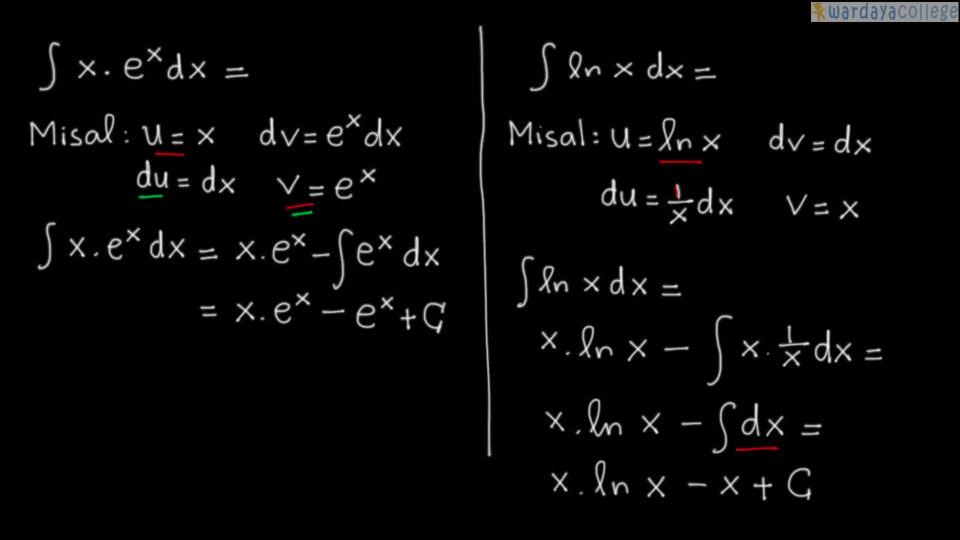 wardayacollege
∫ x . eˣ dx =
Misal : u = x dv = eˣ dx
du = dx v = eˣ
∫ x . eˣ dx = x . eˣ − ∫ eˣ dx
= x . eˣ − eˣ + C
∫ ln x dx =
Misal : u = ln x dv = dx
du = 1/x dx v = x
∫ ln x dx =
x . ln x − ∫ x . 1/x dx =
x . ln x − ∫ dx =
x . ln x − x + C